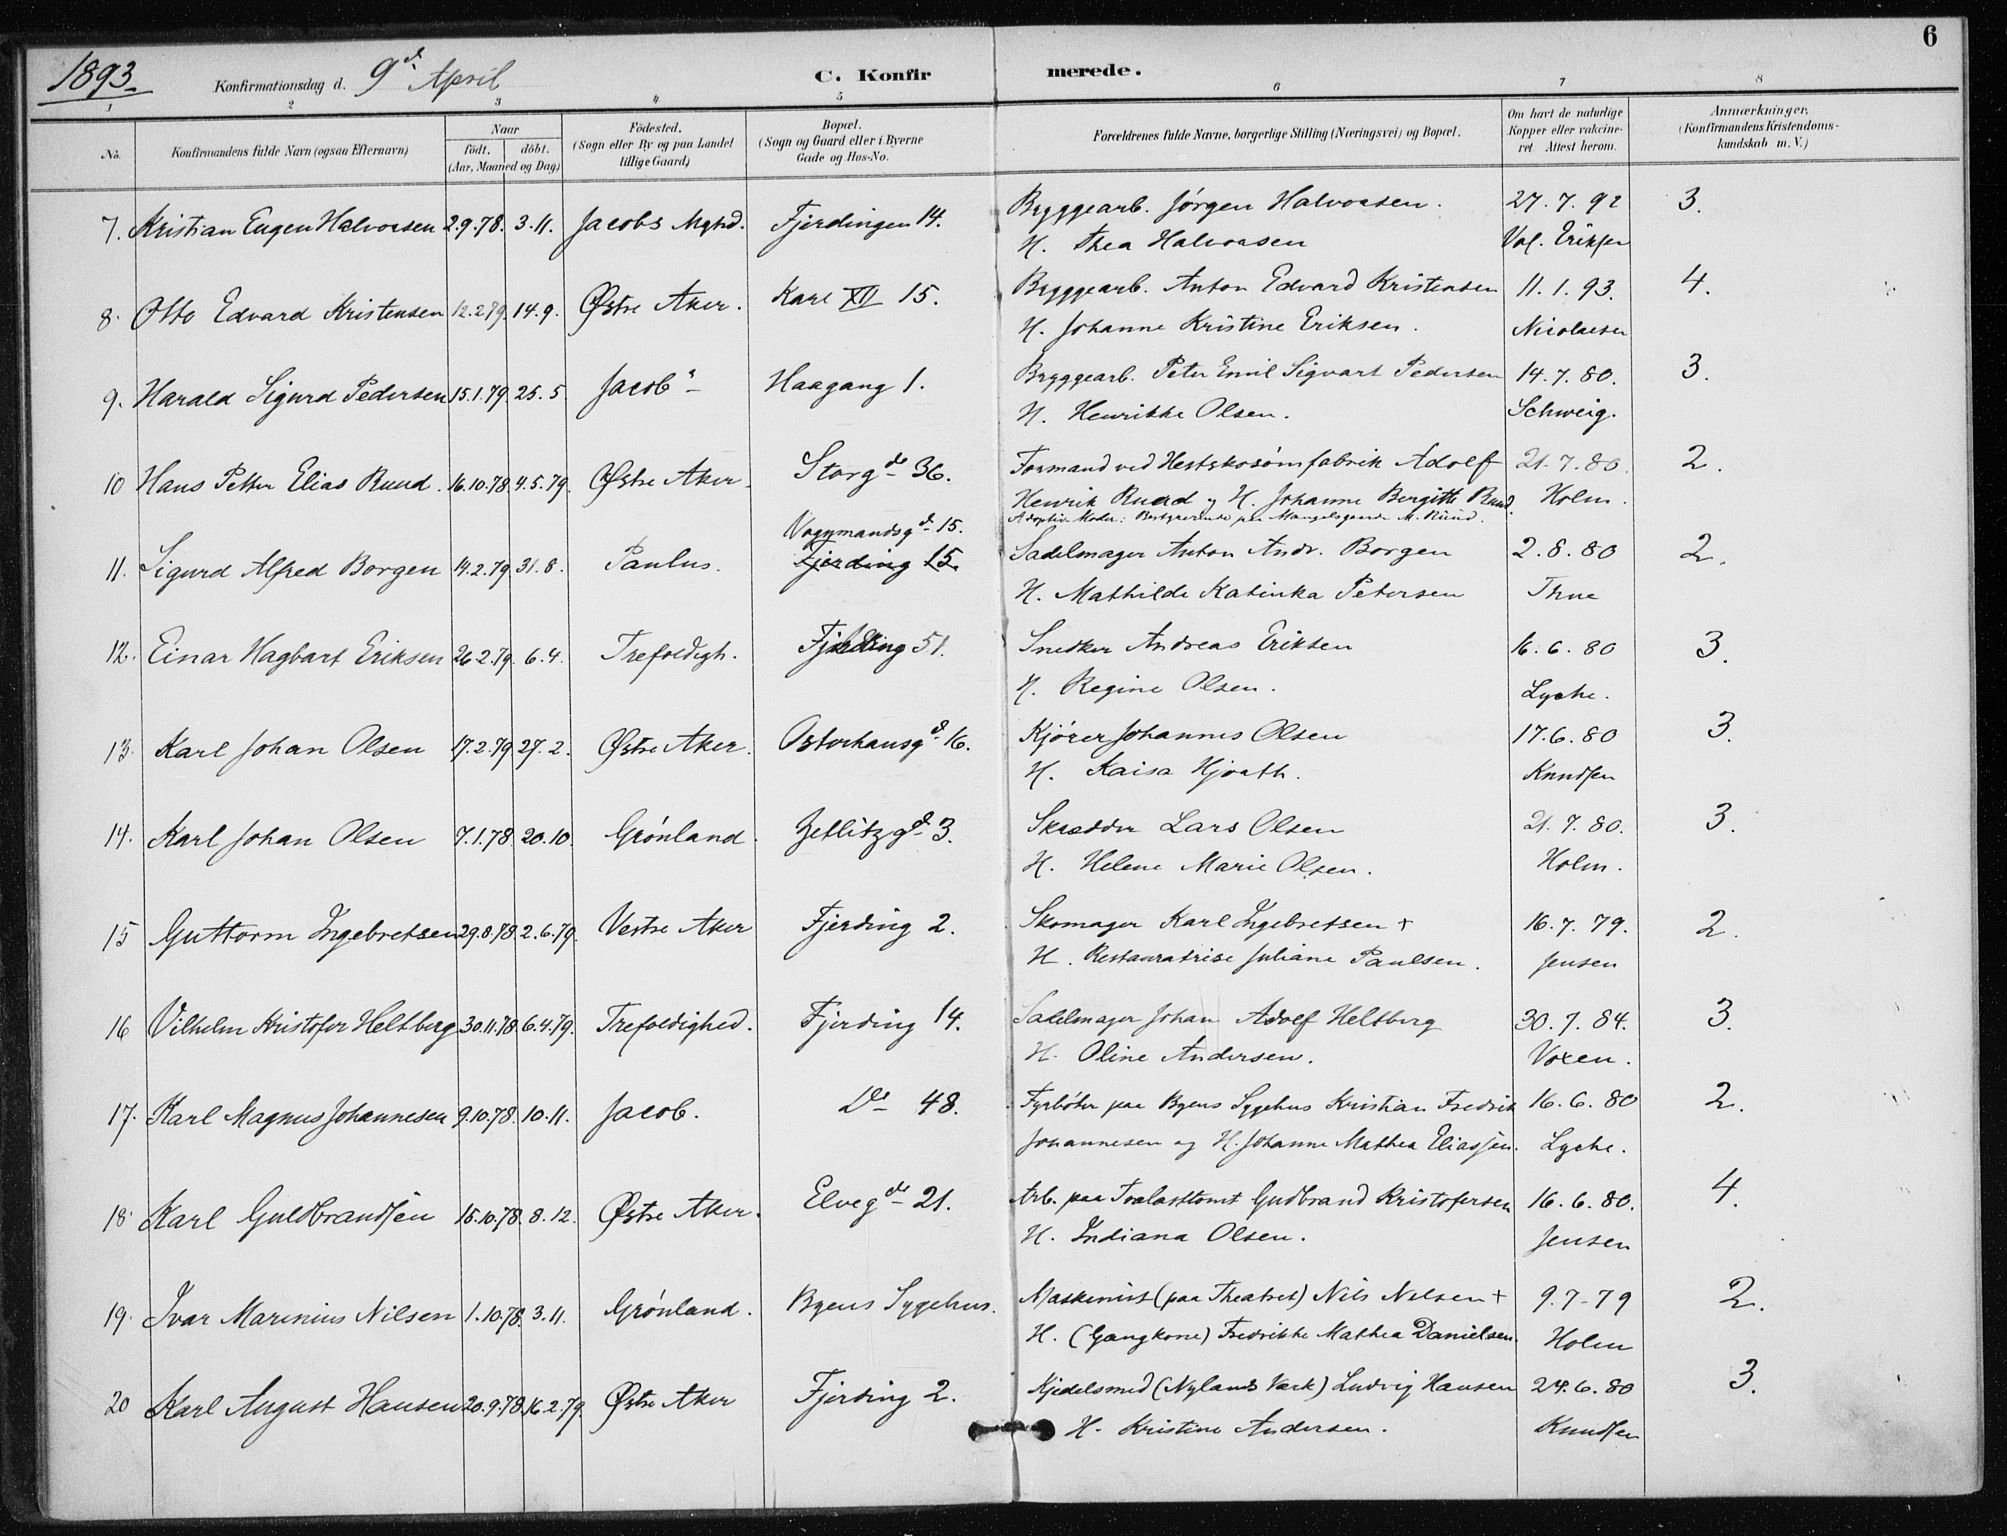 6
1893. Konfirmationsdag d. 9de April C. Konfir merede.
1 2 3 4 5 6 7 8
No. Konfirmandens fulde Navn (ogsaa Efternavn) Naar födt. döbt. (Aar, Maaned og Dag) Födested. (Sogn eller By og paa Landet tillige Gaard) Bopæl. (Sogn og Gaard eller i Byerne Gade og Hus-No. Forældrenes fulde Navne, borgerlige Stilling (Næringsvei) og Bopæl. Om havt de naturlige Kopper eller vakcineret. Attest herom. Anmærkninger, (Konfirmandens Kristendomskundskab m. V.)
7. Kristian Eugen Halvorsen 2.9.78. 3.11. Jacobs Mghd. Fjerdingen 14. Bryggearb. Jørgen Halvorsen. 27.7.92 3.
H. Thea Halvorsen Vol. Eriksen
8. Otto Edvard Kristensen 12.2.79. 14.9. Østre Aker. Karl XII 15. Bryggearb. Anton Edvard Kristensen 11.1.93. 4.
H. Johanne Kristine Eriksen. Nicolaisen
9. Harald Sigurd Pedersen 15.1.79. 25.5. Jacob Haagang 1. Bryggearb. Peter Emil Sigvart Pedersen 14.7.80. 3.
H. Henrikke Olsen. Schweig.
10 Hans Petter Elias Ruud. 16.10.78 4.5.79. Østre Aker. Storgde 36. Formand ved Hestskosømfabrik Adolf 21.7.80. 2.
Henrik Ruud og H. Johanne Bergitte Ruud. Holm.
Adoptiv Moder: Bestyrerinde paa Mangelsgaarden M. Ruud.
Vognmandsgd 15.
11. Sigurd Alfred Borgen 14.2.79 31.8. Paulus. Fjerding 15. Sadelmager Anton Andr. Borgen 2.8.80 2.
H. Mathilde Katinka Petersen Thue
12. Einar Hagbart Eriksen 26.2.79. 6.4. Trefoldigh. Fjerding 51. Snedker Andreas Eriksen 16.6.80 3.
H. Regine Olsen. Lyche.
13. Karl Johan Olsen 17.2.79 27.2. Østre Aker. Osterhausgd 16. Kjører Johannes Olsen 17.6.80 3.
H. Kaisa Hjorth. Knudsen
14. Karl Johan Olsen 7.1.78 20.10. Grønland. Zetlitzgd 3. Skrædder Lars Olsen 21.7.80. 3.
H. Helene Marie Olsen. Holm.
15 Guttorm Ingebretsen 29.8.78 2.6.79. Vestre Aker Fjerding 2. Skomager Karl Ingebretsen + 16.7.79. 2.
H. Restauratrise Juliane Paulsen. Jensen
16 Vilhelm Kristofer Heltberg 30.11.78. 6.4.79. Trefoldighed. Fjerding 14. Sadelmager Johan Adolf Heltberg 30.7.84. 3.
H. Oline Andersen. Voxen.
17. Karl Magnus Johannesen 9.10.78. 10.11. Jacob. Do 48. Fyrbøter paa Byens Sygehus Kristian Fredrik 16.6.80 2.
Johannesen og H. Johanne Mathea Eliassen. Lyche.
18. Karl Guldbrandsen 15.10.78. 8.12. Østre Aker. Elvegde 21. Arb. paa Gudbrand Kristofersen 16.6.80. 4.
H. Indiana Olsen. Jensen
19. Ivar Marinius Nilsen 1.10.78. 3.11. Grønland. Byens Sygehus. Maskinist (paa Theatret) Nils Nilsen + 9.7-79 2.
H. (Gangkone) Fredrikke Mathea Danielsen. Holm
20 Karl August Hansen 20.9.78. 16.2.79. Østre Aker Fjerding 2. Kjedelsmed (Nylands Værk) Ludvig Hansen 24.6.80 3.
H. Kristine Andersen. Knudsen